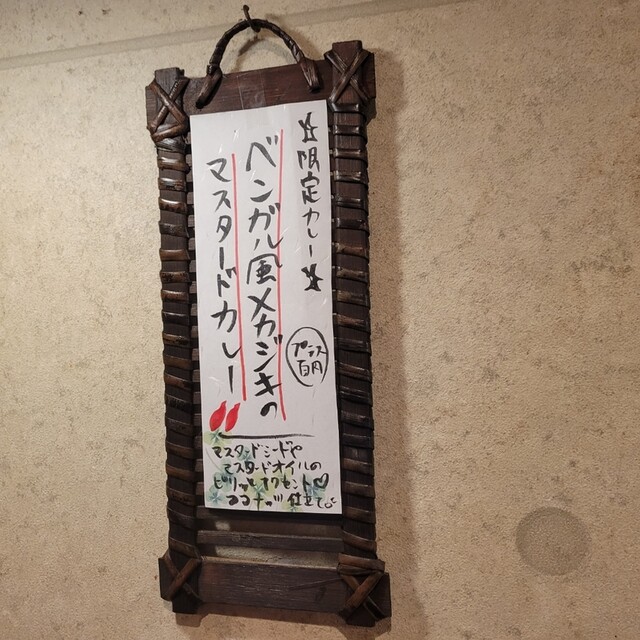 ☆限定カレー☆
ベンガル風メカジキの
マスタードカレー
プラス
百円
マスタードシードや
マスタードオイルの
ピリッとアクセント♡
ココナッツ仕立て